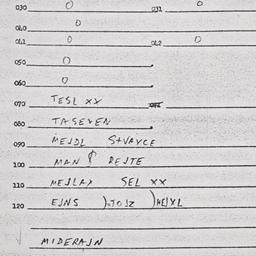 030 0 031 0
040 0
041 0 042 0
050 0
060 0
070 TESL XX
080 TASEVEN
090 MEJDL S+VAYCE
100 MAN REJTE
110 MEJLAX SEL XX
120 EJNS
MIDERAJN